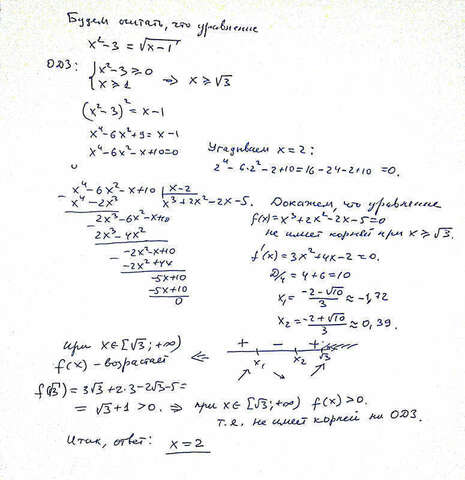 Будем считать, что уравнение
x²-3 = √(x-1)
ОДЗ: { x²-3 ≥ 0
x ≥ 1 ⇒ x ≥ √3
(x²-3)² = x-1
x⁴-6x²+9 = x-1
x⁴-6x²-x+10=0
Угадываем x=2:
2⁴-6·2²-2+10=16-24-2+10 =0.
x⁴-6x²-x+10 | x-2
x⁴-2x³ x³+2x²-2x-5.
2x³-6x²-x+10
2x³-4x²
-2x²-x+10
-2x²+4x
-5x+10
-5x+10
0
Докажем, что уравнение
f(x)=x³+2x²-2x-5=0
не имеет корней при x ≥ √3.
f'(x)=3x²+4x-2=0.
D/4=4+6=10
x₁=(-2-√10)/3 ≈-1,72
x₂=(-2+√10)/3 ≈0,39.
+ - +
x₁ x₂ √3
при x∈[√3;+∞)
f(x)-возрастает ⇐
f(√3)=3√3+2·3-2√3-5=
=√3+1>0. ⇒ при x∈[√3;+∞) f(x)>0.
т.е. не имеет корней на ОДЗ.
Итак, ответ: x=2